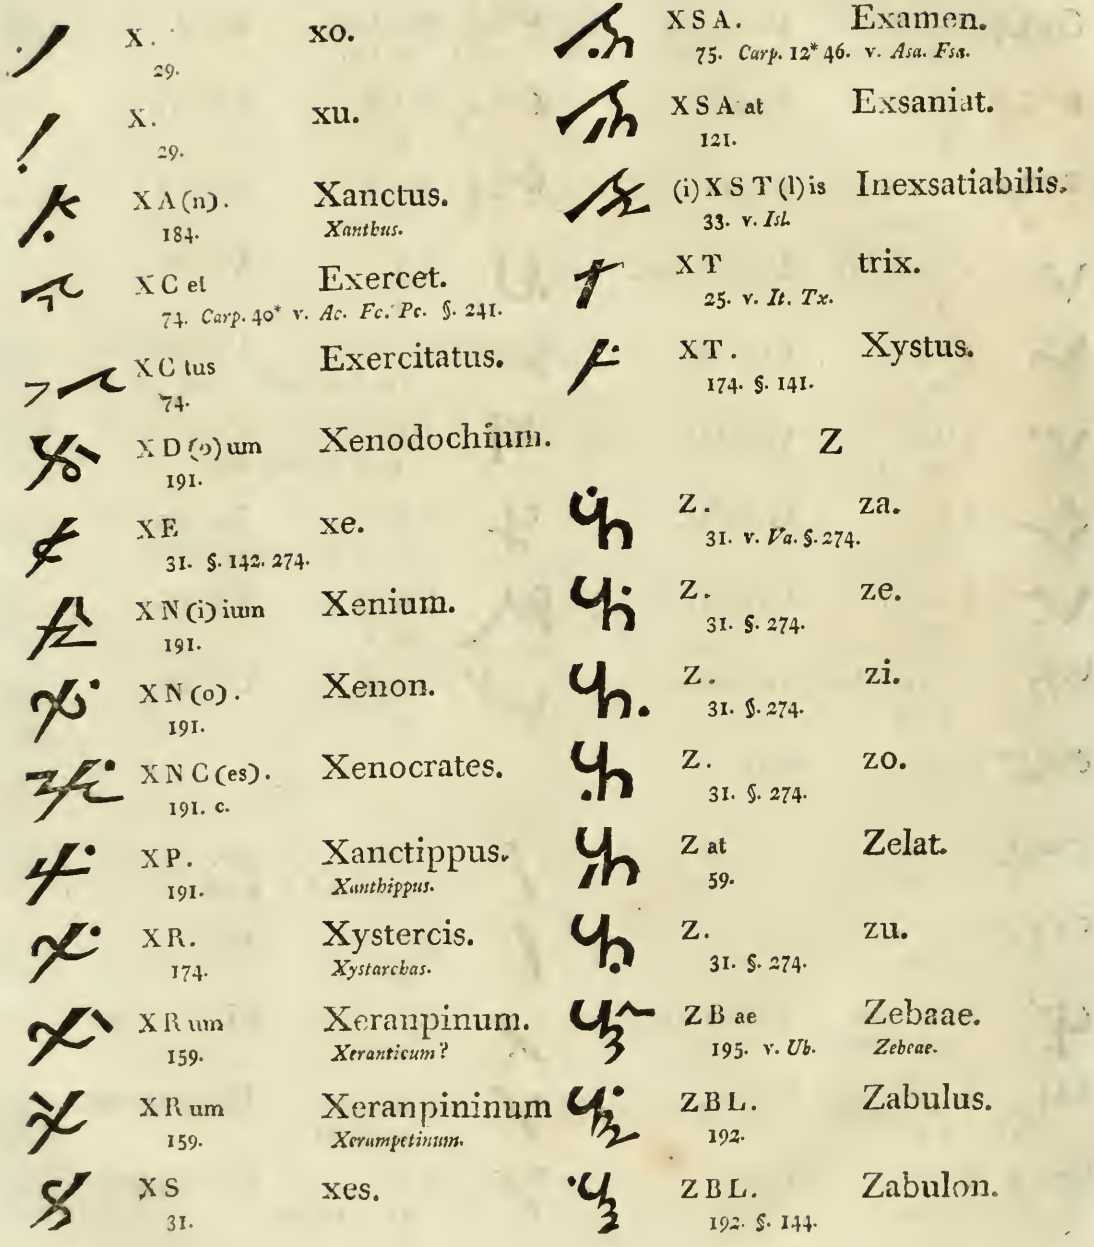 X. xo.
29.
X. xu.
29.
XA(n). Xanctus.
184. Xanthus.
XC et Exercet.
74. Carp. 40* v. Ac. Fc. Pc. §. 241.
XC tus Exercitatus.
74.
XD(o)um Xenodochium.
191.
XE xe.
31. §. 142. 274.
XN(i)ium Xenium.
191.
XN(o). Xenon.
191.
XNC(es). Xenocrates.
191. c.
XP. Xanctippus.
191. Xanthippus.
XR. Xystercis.
174. Xystarchas.
XR um Xeranpinum.
159. Xeranticum?
XR um Xeranpininum
159. Xerampetinum.
XS xes.
31.
XSA. Examen.
75. Carp. 12* 46. v. Asa. Fsa.
XSA at Exsaniat.
121.
(i)XST(l)is Inexsatiabilis.
33. v. Isl.
XT trix.
25. v. It. Tx.
XT. Xystus.
174. §. 141.
Z
Z. za.
31. v. Va. §. 274.
Z. ze.
31. §. 274.
Z. zi.
31. §. 274.
Z. zo.
31. §. 274.
Z at Zelat.
59.
Z. zu.
31. §. 274.
ZB ae Zebaae.
195. v. Ub. Zebeae.
ZBL. Zabulus.
192.
ZBL. Zabulon.
192. §. 144.